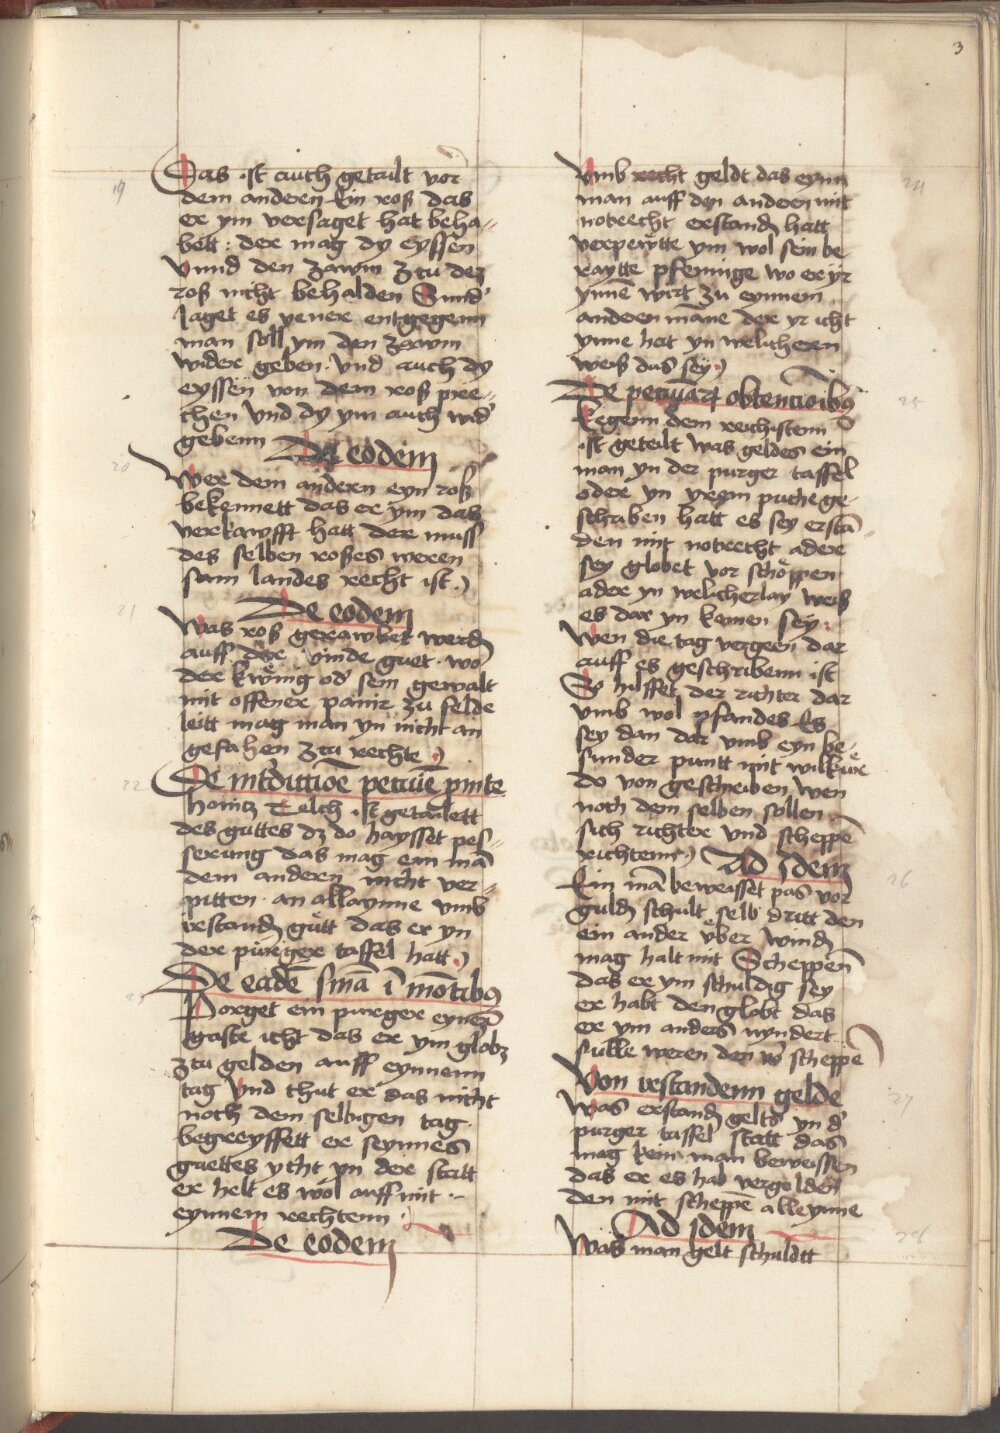 3
19
Das ist auch getailt vor
dem anderen Ein roß das
er ym versaget hat beha-
belt : der mag dy eyssen
Vnnd den zawm ztu dez
roß nicht behalden Sund'
saget es yener entgegenn
man soll ym den zawm
wider geben Vnd auch dy
eyssen von dem roß pre-
chen Vnd dy ym auch wid'
gebenn De eodem
20
Wer dem andern eyn roß
bekennett das er ym das
verkawfft hett der muss
des selben roßes weren
sam landes recht ist
De eodem
21
Was roß gerawbet werden
auff der vinde guet wo
der kwnig od' sein gewalt
mit offener panir zu felde
leitt mag man yn nicht an
gefahen ztu rechte
22
De int'dictioe pecunie
honicz ist getailett
des guttes dz do haysset pes-
serung das mag ein man
dem anderen nicht ver-
pitten an allaynne vmb
irstanden gutt das er yn
der purger taffel hatt
23
De eadem sma i motibus
Porget ein purger eynem
gaste icht das er ym globz
ztu gelden auff eynnenn
tag Vnd thut er das nicht
noch dem selbigen tag
begreyffett er seynnes
guettes ycht yn der statt
er helt es wol auff mit
eynnem rechtenn
De eodem
24
Vmb recht geldt das eynn
man auff den anderen mit
notrecht erstanden hatt
verpewtte ym wol sein be
raytte pfenninge wo er yr
ynne wirt zu eynnem
anderen manne der yr icht
ynne hat yn welicheren
weiß das sey
25
De pecuniar obtencionibus
Kegenn dem reichstenn
ist geteilt was geldes ein
man yn der purger taffel
oder yn yrem puche ge-
schriben hatt es sey erstan-
den mit notrecht ader
sey globet vor schöppen
ader yn welicherlay weiß
es dar yn komen sey
Wen die tag vergeen dar
auff es geschribenn ist
So hilffet der richter dar
vmb wol pfandes Es
sey dan dar vmb eyn be-
sunder puntt mit wilkure
do von geschriben wen
noch dem selben sollen
sich richter vnd scheppen
richtenn Ad idem
26
Ein man beweisset pas vor
gulden schult selb dritt den
ein ander vber winden
mag halt mit Scheppenn
das er ym schuldig sey
er habt den globt das
er ym anders nyndert
sulle weren den vor scheppen
27
Von irstandenn gelde
Was erstanden gelts yn d'
purger taffel statt das
mag kein man beweissen
das er es hab vergolden
den mit scheppen alleynne
28
Ad idem
Was man gelt schuldtt